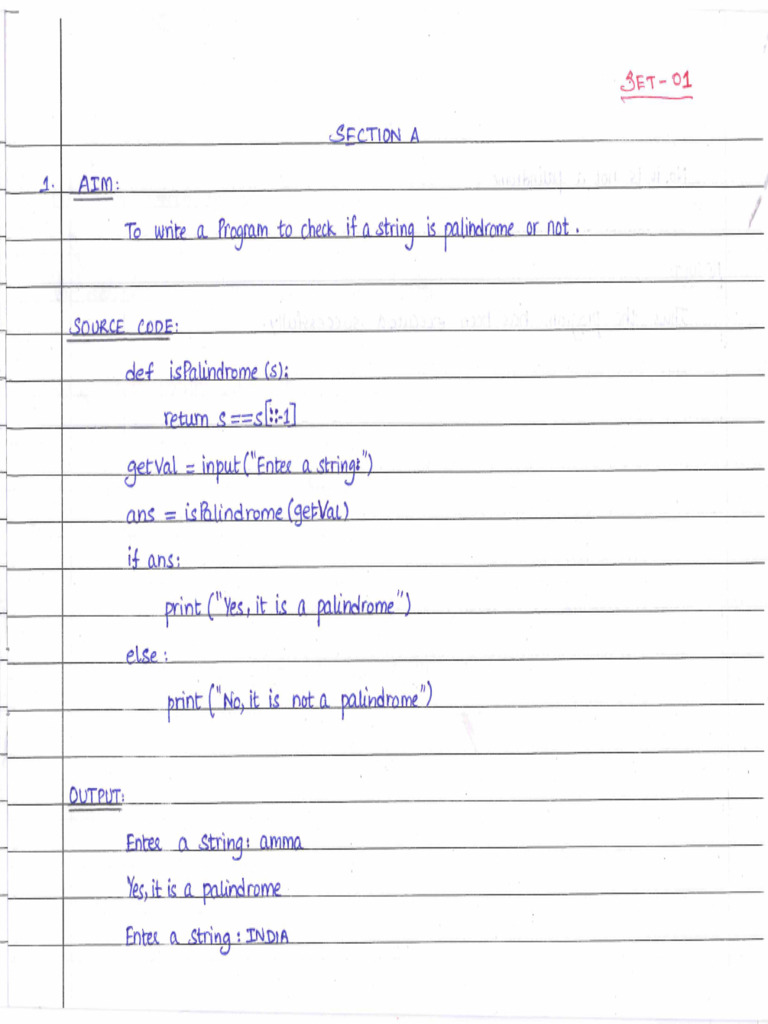 SET-01
SECTION A
1. AIM:
To write a Program to check if a string is palindrome or not.
SOURCE CODE:
def isPalindrome (s):
return s ==s[::-1]
getVal = input("Enter a string:")
ans = isPalindrome(getVal)
if ans:
print ("Yes, it is a palindrome")
else:
print ("No, it is not a palindrome")
OUTPUT:
Enter a string: amma
Yes, it is a palindrome
Enter a string: INDIA